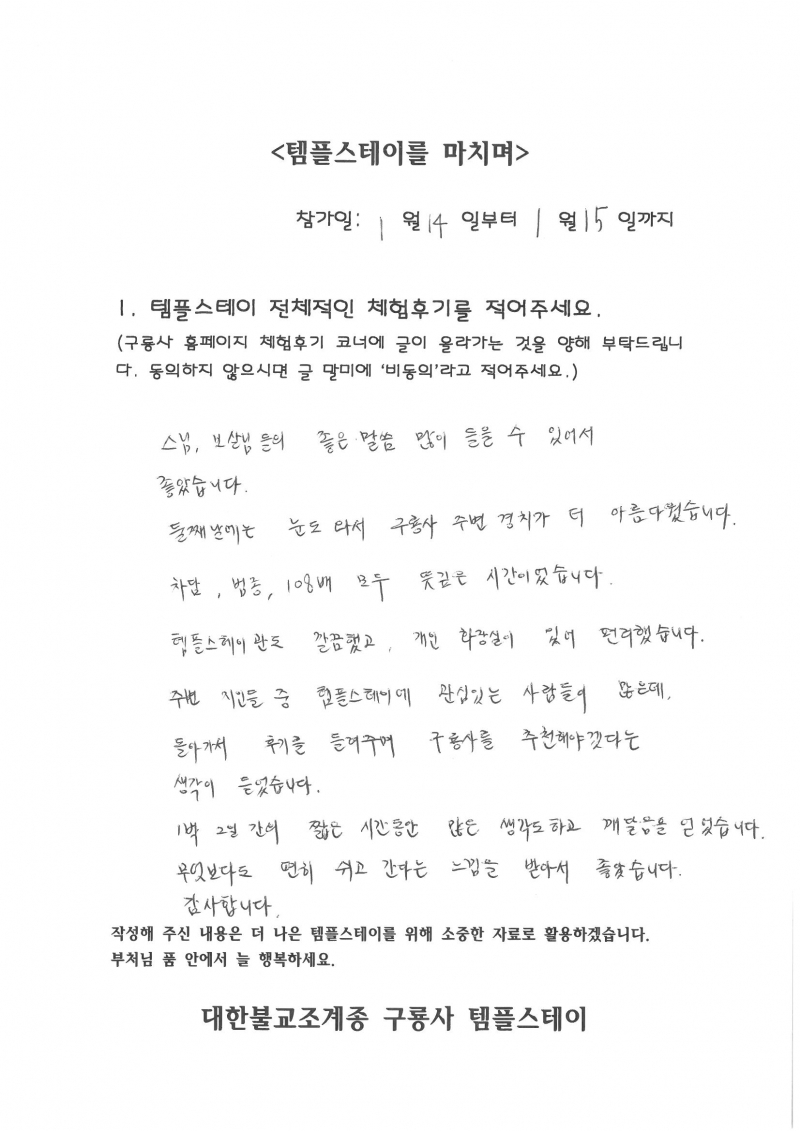 <템플스테이를 마치며>
참가일: 1 월 14 일부터 1 월 15 일까지
1. 템플스테이 전체적인 체험후기를 적어주세요.
(구룡사 홈페이지 체험후기 코너에 글이 올라가는 것을 양해 부탁드립니
다. 동의하지 않으시면 글 말미에 '비동의'라고 적어주세요.)
스님, 보살님들의 좋은 말씀 많이 들을 수 있어서
좋았습니다.
둘째날에는 눈도 와서 구룡사 주변 경치가 더 아름다웠습니다.
차담, 범종, 108배 모두 뜻깊은 시간이었습니다.
템플스테이관도 깔끔했고, 개인 화장실이 있어 편리했습니다.
주변 지인들 중 템플스테이에 관심있는 사람들이 많은데,
돌아가서 후기를 들려주며 구룡사를 추천해야겠다는
생각이 들었습니다.
1박 2일 간의 짧은 시간동안 많은 생각도하고 깨달음을 얻었습니다.
무엇보다도 편히 쉬고 간다는 느낌을 받아서 좋았습니다.
감사합니다.
작성해 주신 내용은 더 나은 템플스테이를 위해 소중한 자료로 활용하겠습니다.
부처님 품 안에서 늘 행복하세요.
대한불교조계종 구룡사 템플스테이